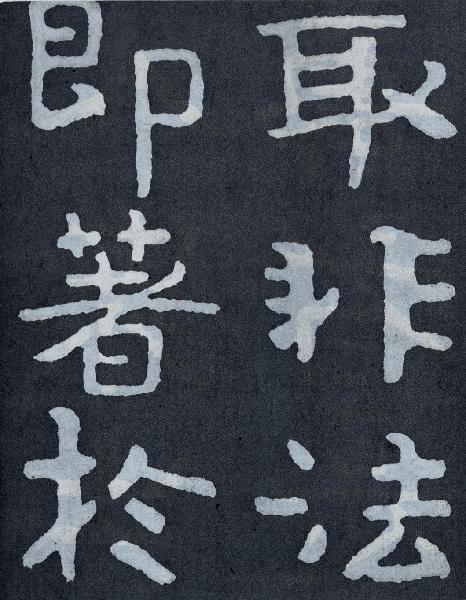 取非法
即著於